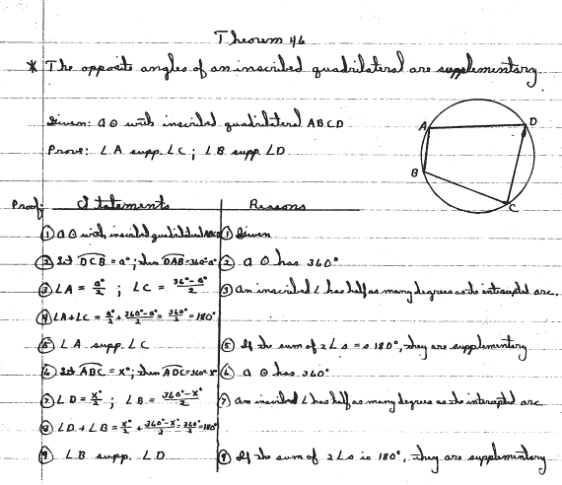 Theorem 46
* The opposite angles of an inscribed quadrilateral are supplementary
Given: a ⊙ with inscribed quadrilateral ABCD
Prove: ∠A supp. ∠C; ∠B supp. ∠D
A D
B
C
Proof: Statements Reasons
① a ⊙ with inscribed quadrilateral ABCD ① Given
② Let DCB = a°; then DAB=360°-a° ② a ⊙ has 360°
③ ∠A = a°/2 ; ∠C = 36°-a°/2 ③ an inscribed ∠ has half as many degrees as its intercepted arc.
④ ∠A+∠C = a°/2 + 360°-a°/2 = 360°/2 = 180°
⑤ ∠A supp. ∠C ⑤ If the sum of 2 ∠s = 180°, they are supplementary
⑥ Let ABC = x°; then ADC=360°-x° ⑥ a ⊙ has 360°
⑦ ∠D = x°/2 ; ∠B = 360°-x°/2 ⑦ an inscribed ∠ has half as many degrees as its intercepted arc
⑧ ∠D + ∠B = x°/2 + 360°-x°/2 = 360°/2 = 180°
⑨ ∠B supp. ∠D ⑨ If the sum of 2 ∠s is 180°, they are supplementary